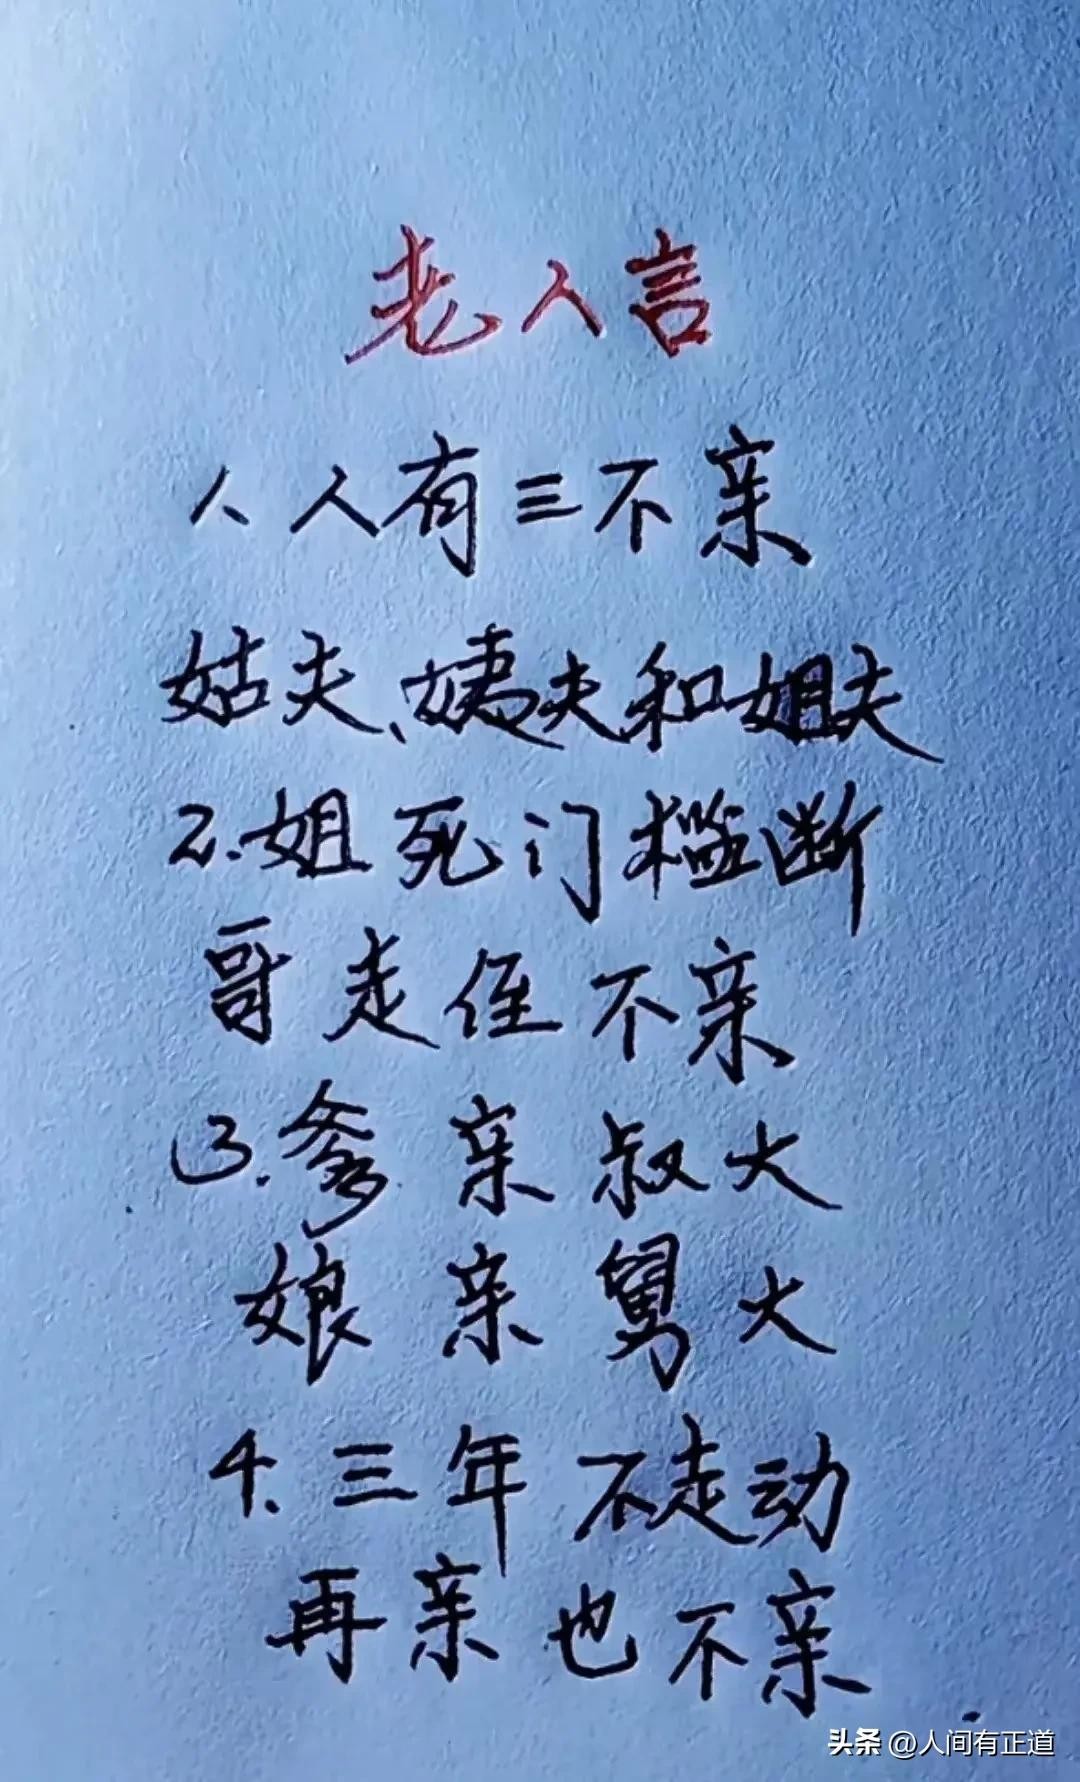 老人言
1、人有三不亲
姑夫、姨夫和姐夫
2.姐死门槛断
哥走侄不亲
3.爹亲叔大
娘亲舅大
4.三年不走动
再亲也不亲
头条 @人间有正道